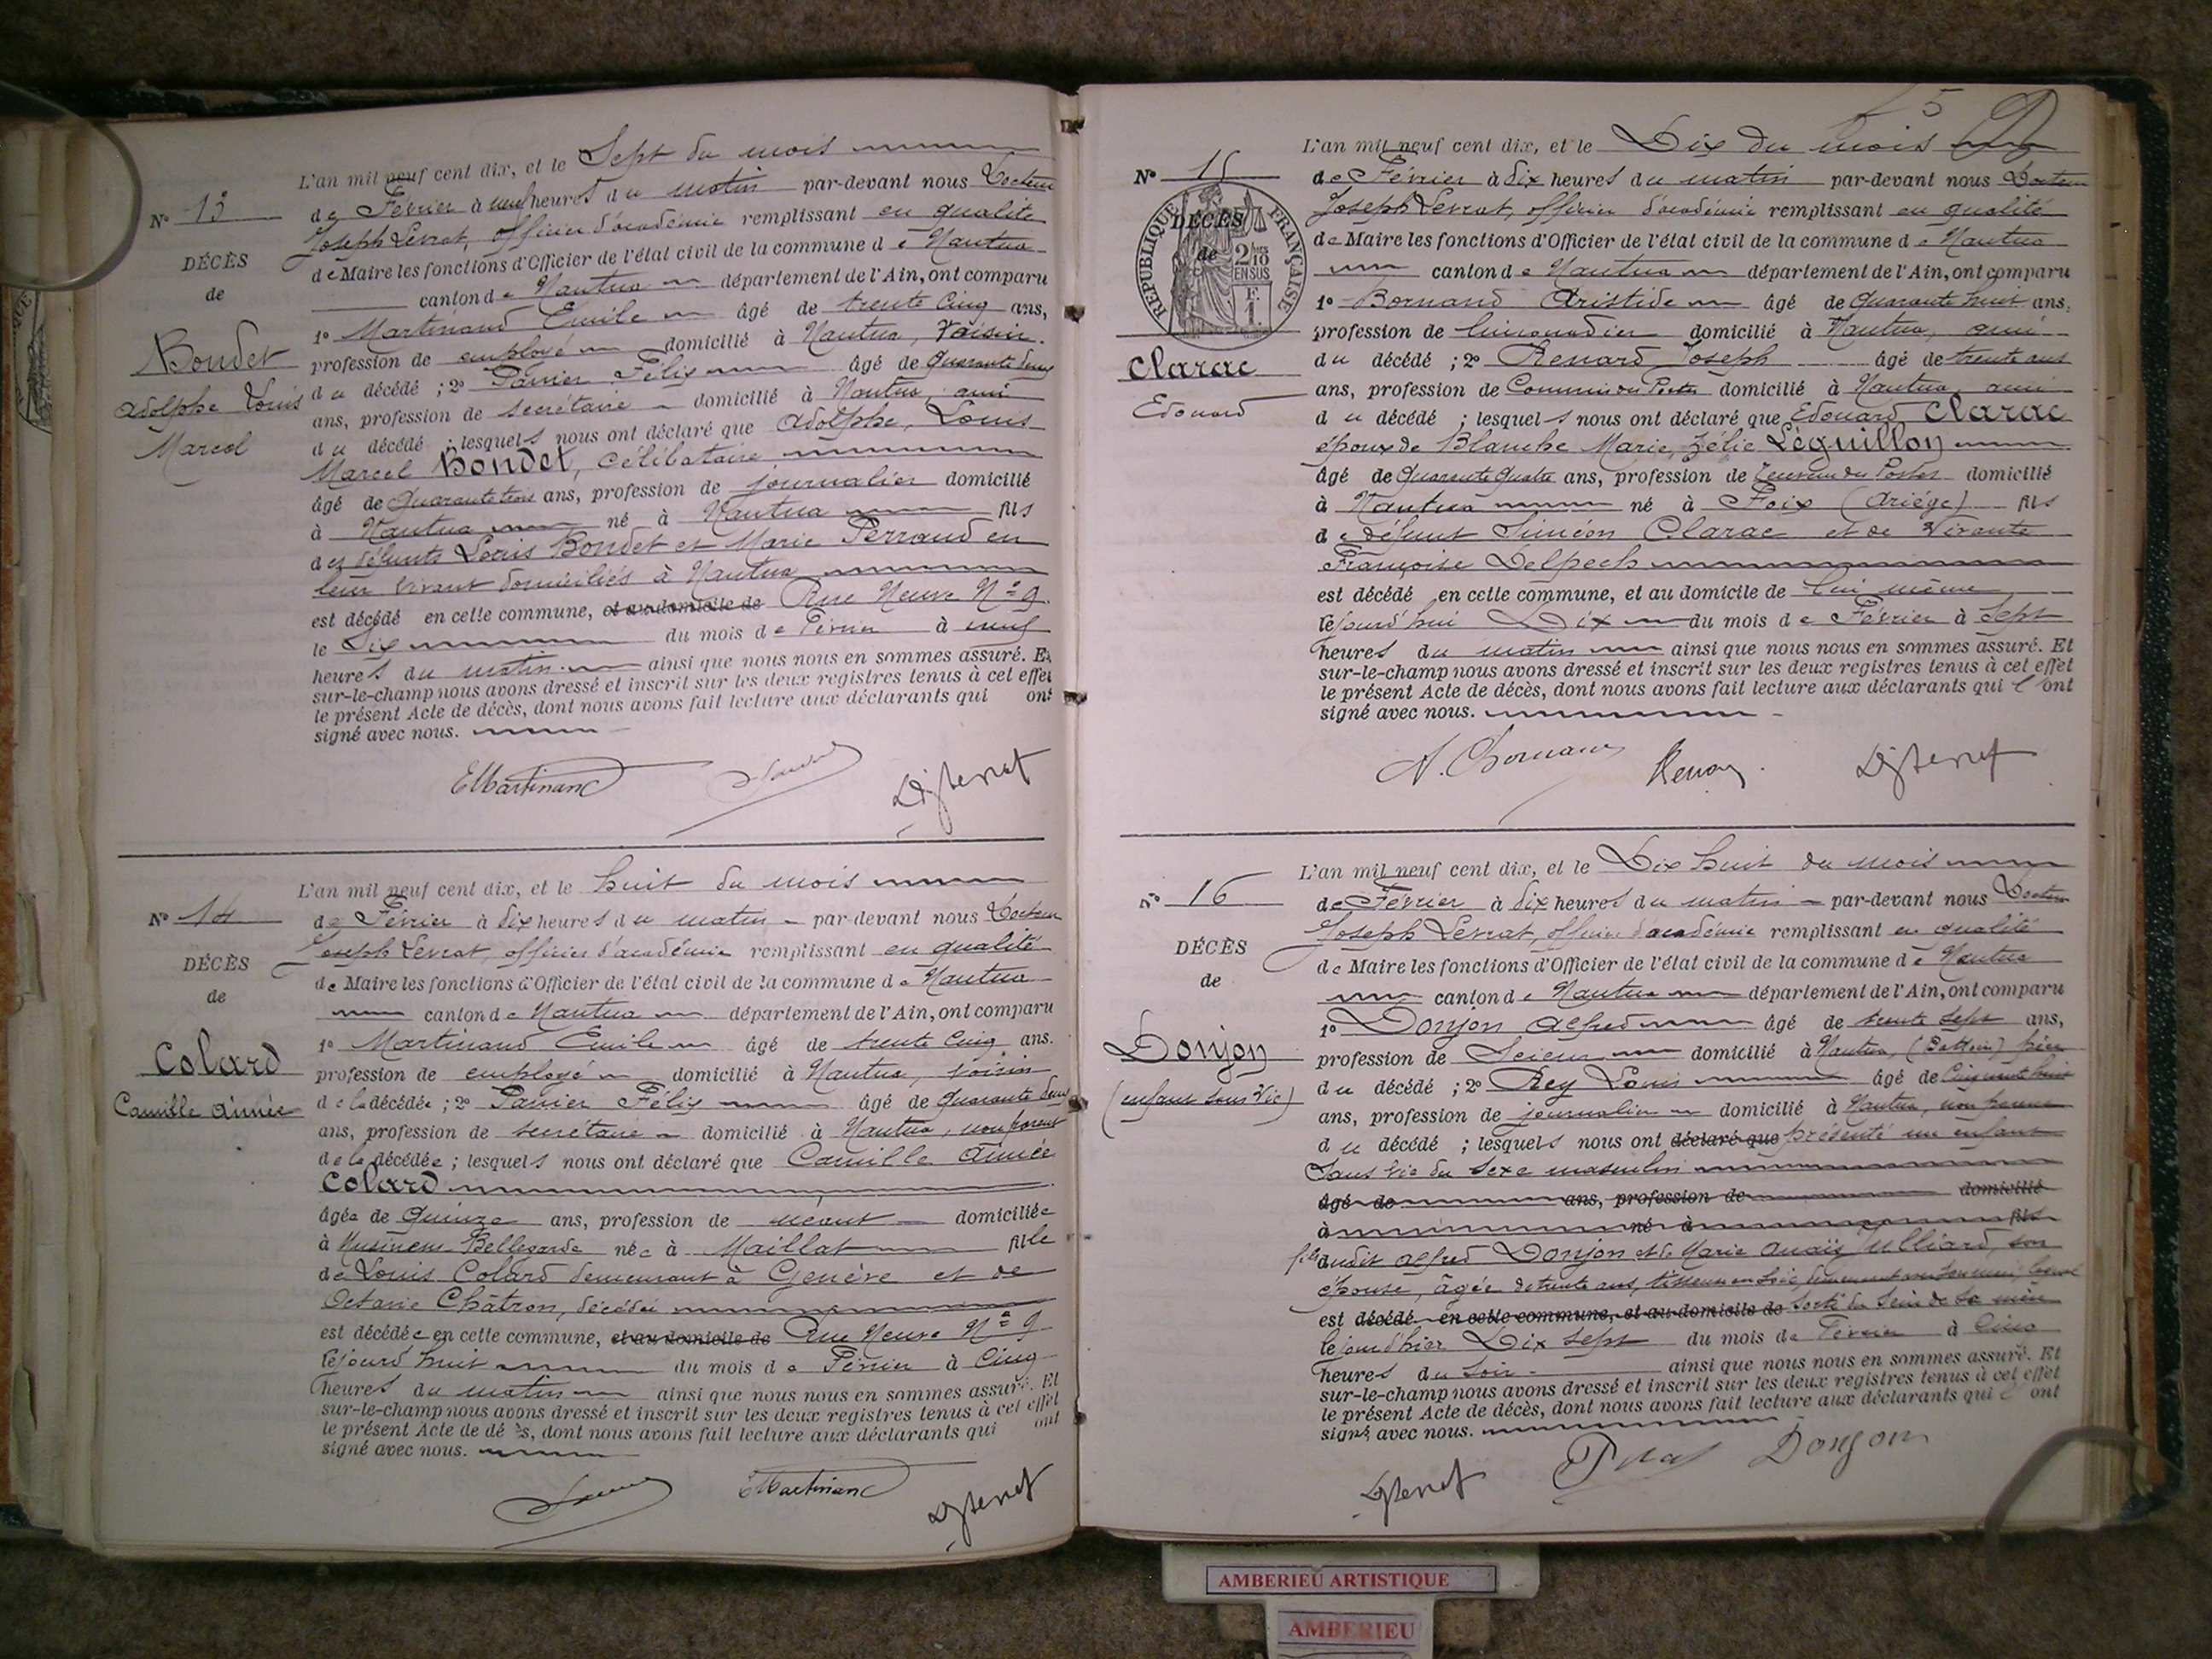 L'an mil neuf cent dix, et le Sept du mois
N° 13
de Février à neuf heures du matin par-devant nous Docteur
Joseph Levrat, officier d'académie remplissant en qualité
DÉCÈS
de Maire les fonctions d'Officier de l'état civil de la commune de Nantua
de
canton de Nantua département de l'Ain, ont comparu
1° Martinand Emile âgé de trente cinq ans,
Bondet
profession de employé domicilié à Nantua, voisin
Adolphe Louis
du décédé ; 2° Panier Félix âgé de quarante deux
Marcel
ans, profession de secrétaire domicilié à Nantua, ami
du décédé ; lesquels nous ont déclaré que Adolphe, Louis
Marcel Bondet, célibataire
âgé de quarante trois ans, profession de journalier domicilié
à Nantua né à Nantua fils
des défunts Louis Bondet et Marie Perraud en
leur vivant domiciliés à Nantua
est décédé en cette commune, et au domicile de Rue Neuve N° 9
le Six du mois de Février à neuf
heures du matin ainsi que nous nous en sommes assuré. Et
sur-le-champ nous avons dressé et inscrit sur les deux registres tenus à cet effet
le présent Acte de décès, dont nous avons fait lecture aux déclarants qui ont
signé avec nous.
EMartinand
L'an mil neuf cent dix, et le huit du mois
N° 14
de Février à dix heures du matin par-devant nous Docteur
Joseph Levrat, officier d'académie remplissant en qualité
DÉCÈS
de Maire les fonctions d'Officier de l'état civil de la commune de Nantua
de
canton de Nantua département de l'Ain, ont comparu
1° Martinand Emile âgé de trente cinq ans.
Colard
profession de employé domicilié à Nantua, voisin
Camille Aimée
de la décédée ; 2° Panier Félix âgé de quarante deux
ans, profession de secrétaire domicilié à Nantua, non parent
de la décédée ; lesquels nous ont déclaré que Camille Aimée
Colard
âgée de quinze ans, profession de néant domiciliée
à Musinens Bellegarde née à Maillat fille
de Louis Colard demeurant à Genève et de
Octavie Châtron, décédée
est décédée en cette commune, et au domicile de Rue Neuve N° 9
le jourd'huit du mois de Février à cinq
heures du matin ainsi que nous nous en sommes assuré. Et
sur-le-champ nous avons dressé et inscrit sur les deux registres tenus à cet effet
le présent Acte de décès, dont nous avons fait lecture aux déclarants qui ont
signé avec nous.
EMartinand
5
L'an mil neuf cent dix, et le Dix du mois
N° 15
de Février à dix heures du matin par-devant nous Docteur
Joseph Levrat, officier d'académie remplissant en qualité
RÉPUBLIQUE FRANÇAISE
2/10 EN SUS
F. 1.
DÉCÈS
de Maire les fonctions d'Officier de l'état civil de la commune de Nantua
de
canton de Nantua département de l'Ain, ont comparu
1° Bornand Aristide âgé de quarante huit ans,
profession de limonadier domicilié à Nantua, ami
Clarac
du décédé ; 2° Renard Joseph âgé de trente ans
Edouard
ans, profession de Commis des Postes domicilié à Nantua, ami
du décédé ; lesquels nous ont déclaré que Edouard Clarac
époux de Blanche Marie, Zélie Léguillon
âgé de quarante quatre ans, profession de Receveur des Postes domicilié
à Nantua né à Foix (Ariége) fils
de défunt Siméon Clarac et de vivante
Françoise Delpech
est décédé en cette commune, et au domicile de lui même
le jourd'hui Dix du mois de Février à Sept
heures du matin ainsi que nous nous en sommes assuré. Et
sur-le-champ nous avons dressé et inscrit sur les deux registres tenus à cet effet
le présent Acte de décès, dont nous avons fait lecture aux déclarants qui l'ont
signé avec nous.
L'an mil neuf cent dix, et le Dix huit du mois
N° 16
de Février à dix heures du matin par-devant nous Docteur
Joseph Levrat, officier d'académie remplissant en qualité
DÉCÈS
de Maire les fonctions d'Officier de l'état civil de la commune de Nantua
de
canton de Nantua département de l'Ain, ont comparu
1° Donjon Alfred âgé de trente sept ans,
Donjon
profession de Scieur domicilié à Nantua, père
(enfant sans vie)
du décédé ; 2° Rey Louis âgé de cinquante huit
ans, profession de journalier domicilié à Nantua, non parent
du décédé ; lesquels nous ont déclaré que présenté un enfant
sans vie du sexe masculin
âgé de ans, profession de domicilié
à né à fils
fils dudit Alfred Donjon et de Marie Anaïs Julliard, son
épouse, âgée de trente ans, tisseuse en soie, demeurant avec son mari, lequel
est décédé en cette commune, et au domicile de sorti du sein de sa mère
le jour d'hier Dix sept du mois de Février à cinq
heures du soir ainsi que nous nous en sommes assuré. Et
sur-le-champ nous avons dressé et inscrit sur les deux registres tenus à cet effet
le présent Acte de décès, dont nous avons fait lecture aux déclarants qui l'ont
signé avec nous.
Donjon
AMBERIEU ARTISTIQUE
AMBERIEU